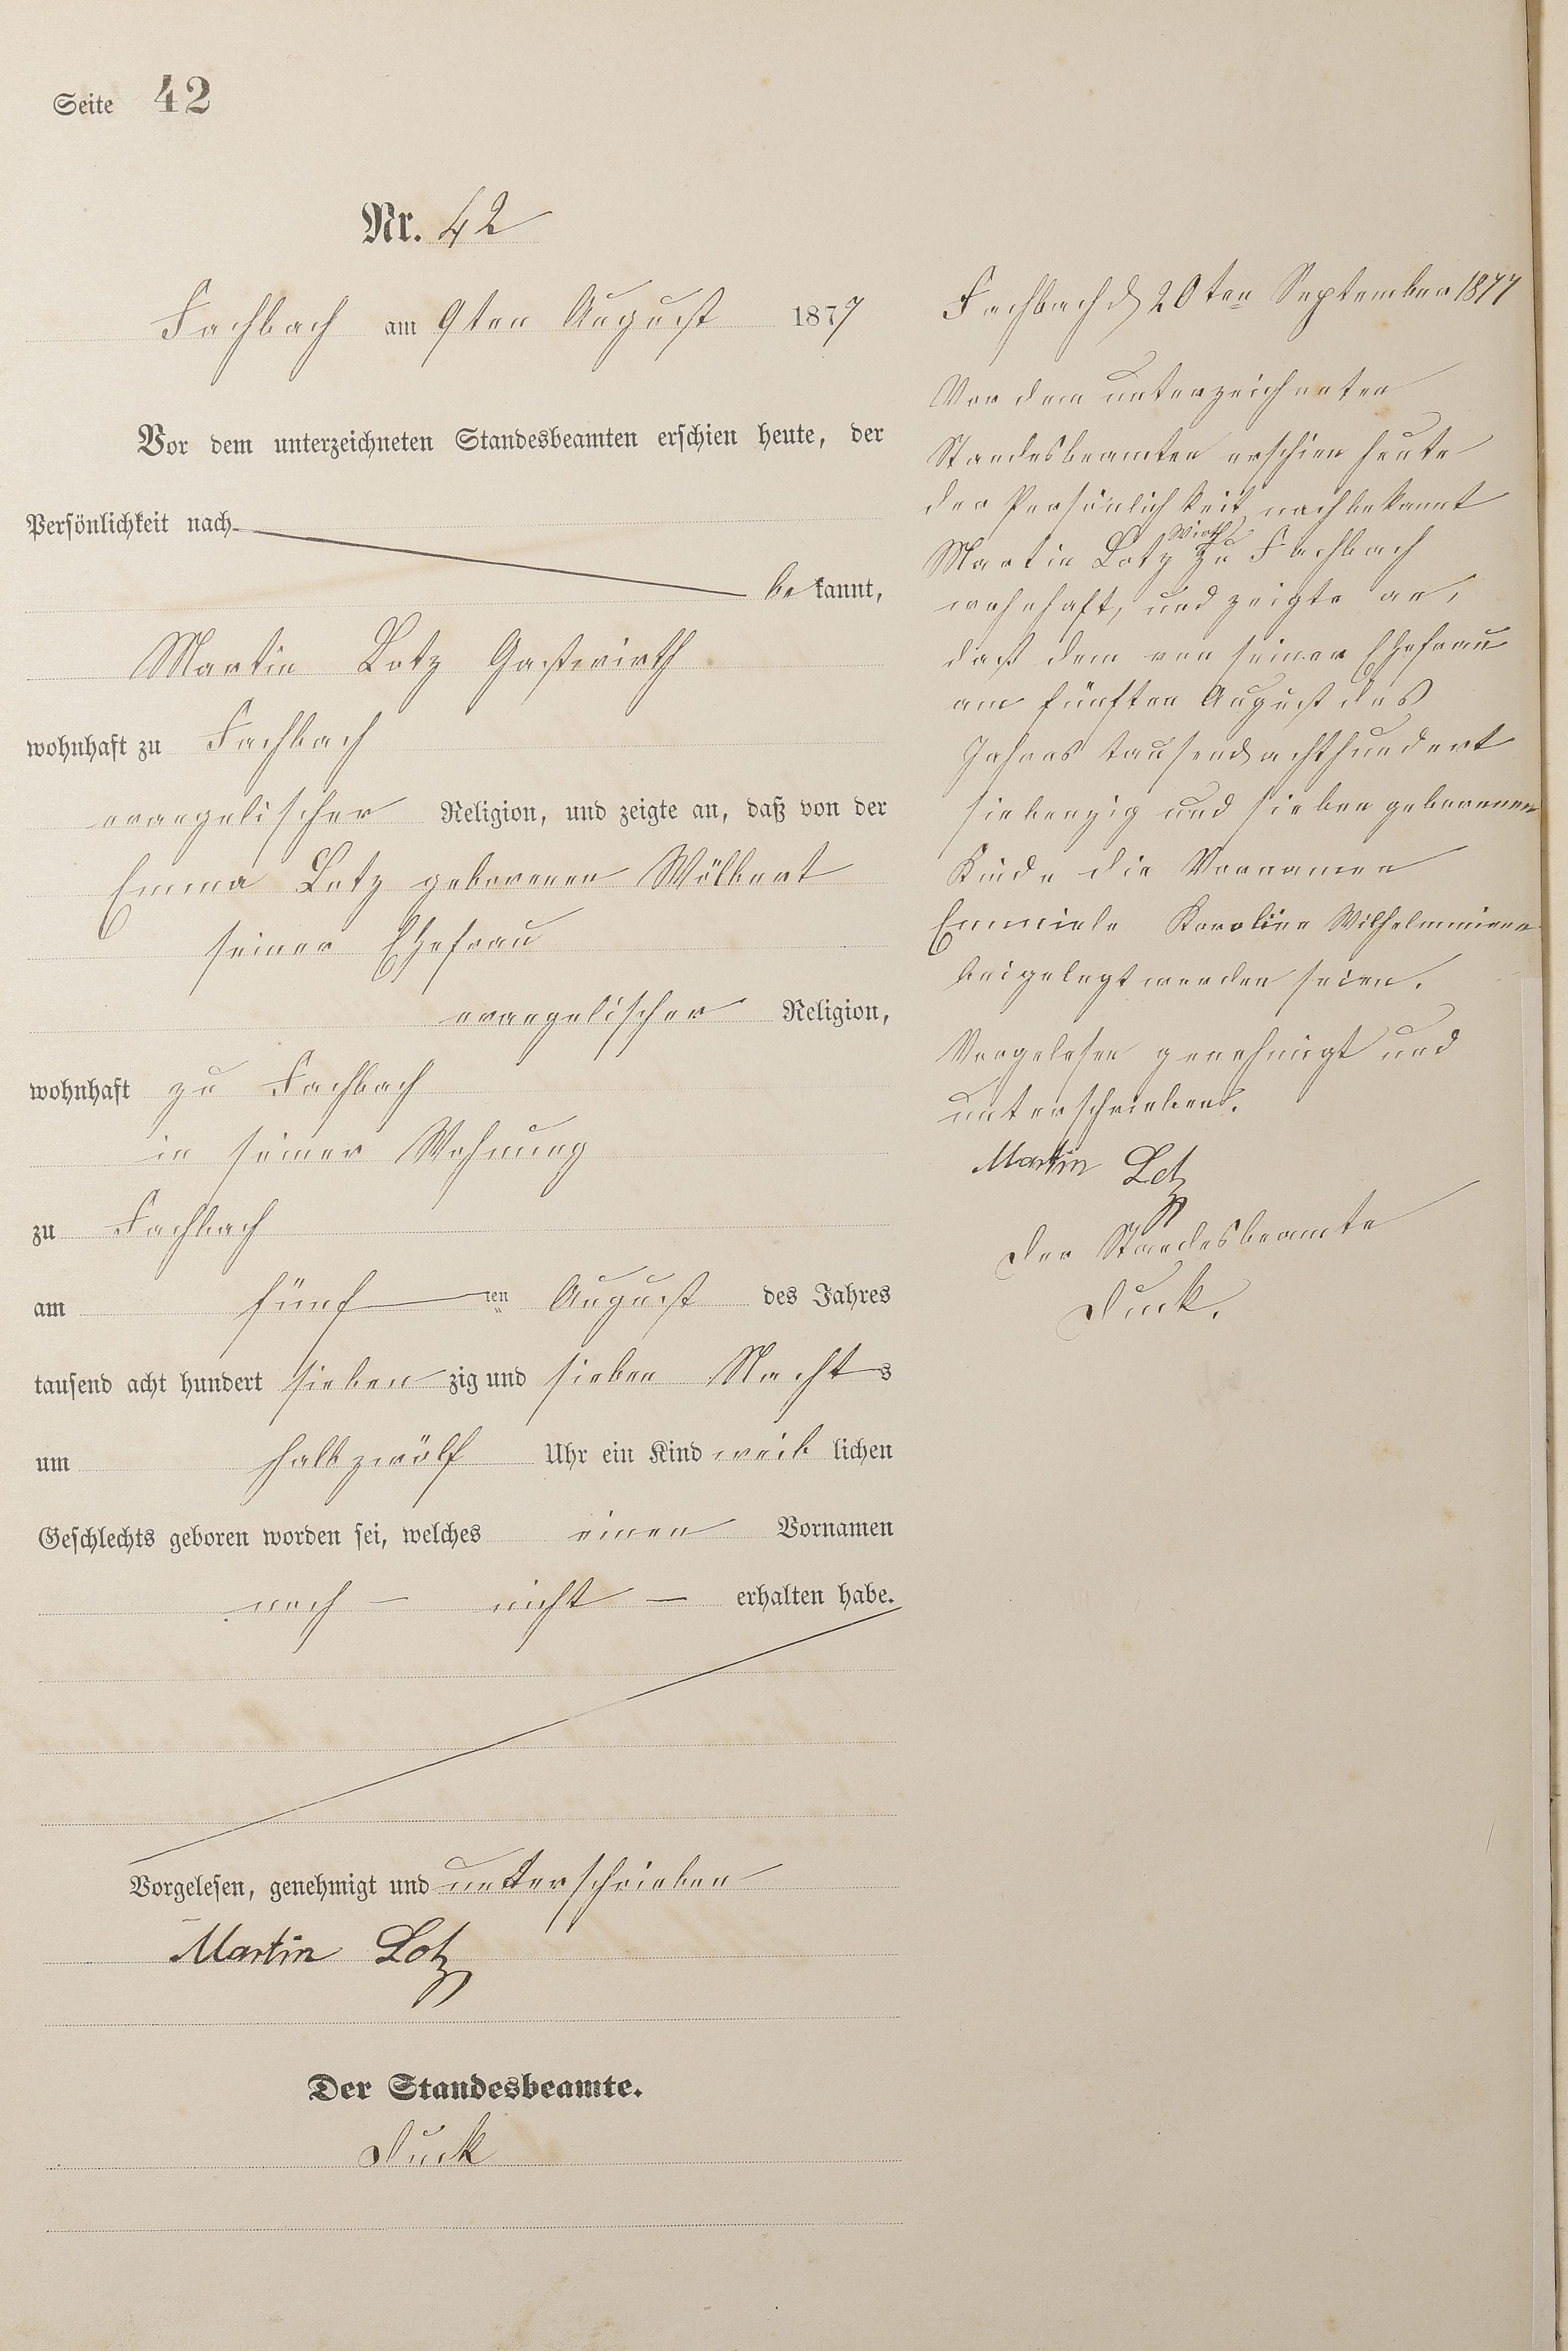 Seite 42
Nr. 42
Fachbach am 9ten August 1877
Vor dem unterzeichneten Standesbeamten erschien heute, der
Persönlichkeit nach
bekannt,
Martin Lotz Gastwirth
wohnhaft zu Fachbach
evangelischer Religion, und zeigte an, daß von der
Emma Lotz geborenen Wölbert
seiner Ehefrau
evangelischer Religion,
wohnhaft zu Fachbach
in seiner Wohnung
zu Fachbach
am fünften August des Jahres
tausend acht hundert siebenzig und sieben Nachts
um halb zwölf Uhr ein Kind weiblichen
Geschlechts geboren worden sei, welches einen Vornamen
noch – nicht – erhalten habe.
Vorgelesen, genehmigt und unterschrieben
Martin Lotz
Der Standesbeamte.
Duck
Fachbach d 20ten September 1877
Vor dem unterzeichneten
Standesbeamten erschien heute
der Persönlichkeit nach bekannt
Martin Lotz Wirth zu Fachbach
wohnhaft, und zeigte an,
daß dem von seiner Ehefrau
am fünften August des
Jahres tausend achthundert
siebenzig und sieben geborenen
Kinde die Vornamen
Karoline Wilhelmine
beigelegt worden seien.
Vorgelesen genehmigt und
unterschrieben.
Martin Lotz
Der Standesbeamte
Duck.